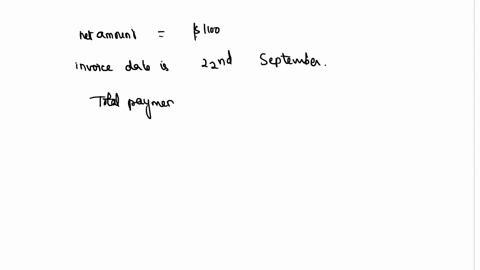 net amount = $1100
invoice date is 22nd September.
Total paymen